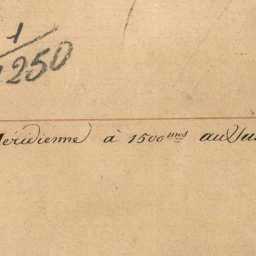 1
250
Méridienne à 1500 ms au Sud